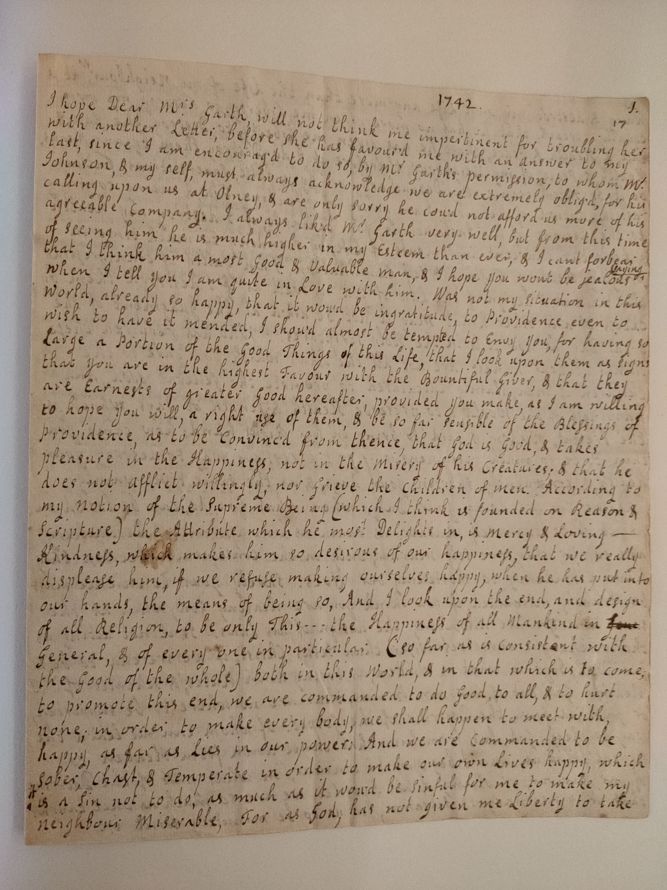 1742. 1.
17
I hope Dear Mrs Garth, will not think me impertinent for troubling her
with another Letter, before she has favour'd me with an answer to my
last, since I am encourag'd to do so, by Mr Garth's permission, to whom Mr
Johnson, & my self, must always acknowledge we are extremely oblig'd, for his
calling upon us at Olney, & are only sorry he cou'd not afford us more of his
agreeable Company. I always lik'd Mr Garth very well, but from this time
of seeing him he is much higher in my Esteem than ever, & I can't forbear
saying
that I think him a most Good & Valuable man, & I hope you wont be jealous
when I tell you I am quite in Love with him. Was not my Situation in this
World, already so happy, that it wou'd be ingratitude, to Providence even to
wish to have it mended, I shou'd almost be tempted to Envy you, for having so
Large a Portion of the Good Things of this Life, that I look upon them as signs
that you are in the highest Favour with the Bountiful Giver, & that they
are Earnests of greater Good hereafter, provided you make, as I am willing
to hope you will, a right use of them, & be so far sensible of the Blessings of
Providence, as to be Convinc'd from thence, that God is Good, & takes
pleasure in the Happiness, not in the Misery of his Creatures; & that he
does not afflict willingly, nor Grieve the Children of men. According to
my Notion of the Supreme Being (which I think is founded on Reason &
Scripture) the Attribute which he most Delights in, is Mercy & Loving —
Kindness, which makes him so desirous of our happiness, that we really
displease him, if we refuse making ourselves happy, when he has put into
our hands, the means of being so, And I look upon the end, and design
of all Religion, to be only This --- the Happiness of all Mankind in
General, & of every one in particular (so far as is Consistent with
the Good of the whole) both in this World, & in that which is to come,
to promote this end, we are commanded to do Good, to all, & to hurt
none, in order to make every body, we shall happen to meet with,
happy, as far as Lies in our power; And we are Commanded to be
Sober, Chast, & Temperate in order to make our own Lives happy, which
is a Sin not to do, as much as it wou'd be Sinful for me to make my
neighbour Miserable, For as God, has not given me Liberty to take